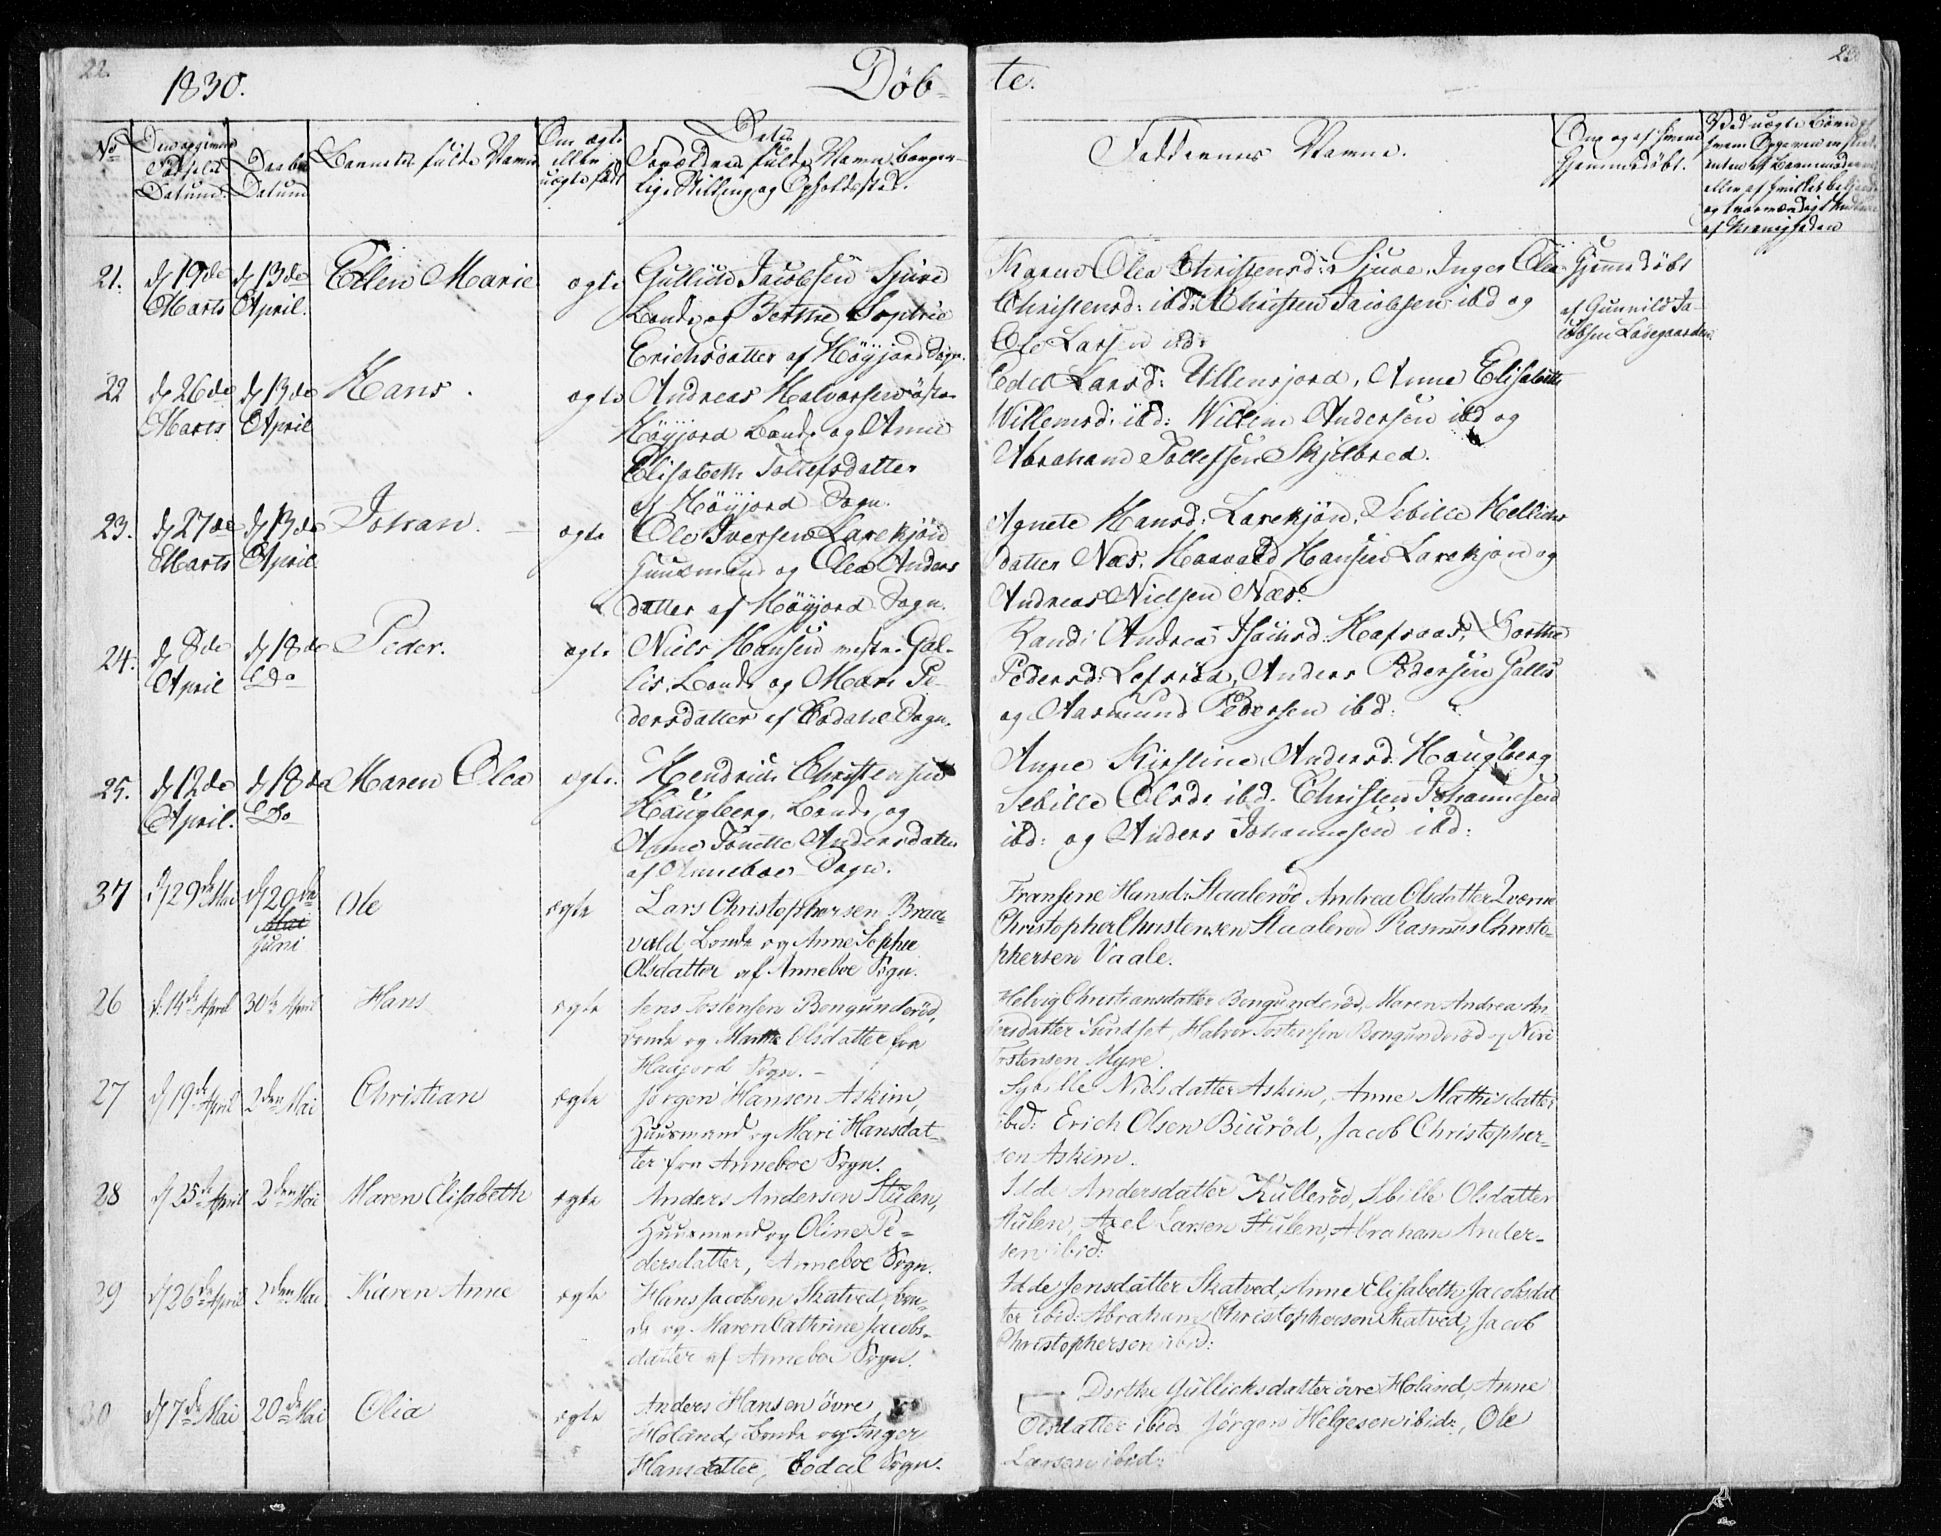 22.
1830.
Døb-
te.
23
No
Den opgivne
Fødsels
Datum.
Daabs
Datum
Barnets fulde Navn
Om ægte
eller
uægte født
Dets
Forældres fulde Navne borger-
lige Stilling og Opholdssted.
Faddernes Navne.
Om og af hvem
hjemmedøbt.
21.
d 19de
Marts
d 13de
April.
Ellen Marie
ægte
Gullick Jacobsen Sjuve
Bonde og Berthe Sophie
Erichsdatter af Høyjord Sogn.
Karen Olea Christensd: Sjuve, Inger Olea
Christensd: ibd: Christen Jacobsen ibd og
Ole Larsen ibd:
Hjemmedøbt
af Gunnild Ja-
cobsen Ladegaarden
22
d 26de
Marts
d 13de
April
Hans.
ægte
Andreas Halvorsen østre
Høyjord Bonde og Anne
Elisabeth Tollefsdatter
af Høyjord Sogn.
Edel Larsd: Ullensjord, Anne Elisabeth
Willemsd: ibd: Willem Andersen ibd og
Abraham Tollefsen Skjelbred.
23.
d 27de
Marts
d 13de
April
Johan.
ægte
Ole Iversen Larekjøn
Huusmand og Olea Anders
datter af Høyjord Sogn.
Agnete Hansd: Larekjøn, Sebille Hellies
datter Næs, Haavald Hansen Larekjøn og
Andreas Nielsen Næs.
24.
d 8de
April
d 18de
Do
Peder.
ægte
Niels Hansen vestre Gal-
lis, Bonde og Mari Pe-
dersdatter af Kodahl Sogn.
Randi Andrea Hafsaas, Dorthe
Pedersd: Lefsrød, Anders Pedersen Gallis
og Aasmund Pedersen ibd:
25.
d 12de
April.
d 18de
Do
Maren Olea
ægte.
Hendrich Christensen
Haugberg, Bonde og
Anne Tonette Andersdatter
af Anneboe Sogn.
Anne Kirstine Andersd: Haugberg
Sebille Olsd: ibd. Christen Johannesen
ibd: og Anders Johannesen ibd:
37
d 29de Mai
d 20de
Mai
Juni
Ole
ægte
Lars Christophersen Braa-
vald Bonde og Anne Sophie
Olsdatter af Anneboe Sogn.
Fransene Hansd: Staalerød Andrea Olsdatter Qværne
Christopher Christensen Staalerød Rasmus Christo-
phersen Vaale.
26
d. 14de April
30te April
Hans
ægte
Jens Tostensen Bongunderød,
Bonde og Marthe Olsdatter fra
Haugjord Sogn.-
Helvig Christiansdatter Bongunderød, Maren Andrea An-
dersdatter Sundset, Halvor Tostensen Bongunderød og
Tostensen Myre.
27
d 19de April
2den Mai
Christian
ægte
Jørgen Hansen Askim,
Huusmand og Mari Hansdat-
ter fra Anneboe Sogn.
Sybille Nielsdatter Askim, Anne Mathisdatter
ibid: Erich Olsen Biurød, Jacob Christopher-
sen Askim.
28
d 25de April
2den Mai
Maren Elisabeth
ægte
Anders Andersen Stulen,
Huusmand og Oline Pe-
dersdatter, Anneboe Sogn.
Idde Andersdatter Kullerød, Sibille Olsdatter
Stulen, Axel Larsen Stulen, Abraham Ander-
sen ibid:
29
d 26de April
2den Mai
Karen Anne
ægte
Hans Jacobsen Skatved, bon-
de og Maren Cathrine Jacobs-
datter af Anneboe Sogn.
Idde Jensdatter Skatved, Anne Elisabeth Jacobsdat
ter ibid: Abraham Christophersen Skatved, Jacob
Christophersen ibid:
30
d 7de Mai
20de Mai
Olia
ægte
Anders Hansen øvre
Holand, Bonde og Inger
Hansdatter, Kodal Sogn.
Dorthe Gullichsdatter øvre Holand, Anne
Olsdatter ibid: Jørgen Helgesen ibid:, Ole
Larsen ibid: